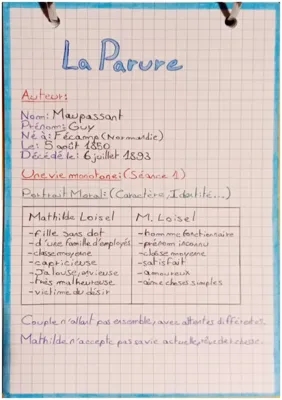 La Parure
Auteur:
Nom: Maupassant
Prénom: Guy
Né à: Fécamp (Normandie)
Le: 5 août 1850
Décédé le: 6 juillet 1893
Une vie monotone: (Séance 1)
Portrait Moral: (Caractère, Identité...)
Mathilde Loisel
- fille sans dot
- d'une famille d'employés
- classe moyenne
- capricieuse
- Jalouse, envieuse
- très malheureuse
- victime du désir
M. Loisel
- homme fonctionnaire
- prénom inconnu
- classe moyenne
- satisfait
- amoureux
- aime choses simples
Couple n'allant pas ensemble, avec attentes différentes.
Mathilde n'accepte pas sa vie actuelle,